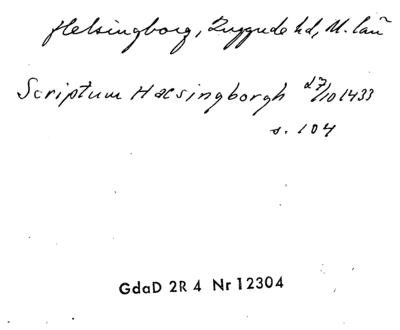 Helsingborg, Luggude hd, M. län
Scriptum Hælsingborgh d 7/10 1433
s. 104
GdaD 2R 4 Nr 12304